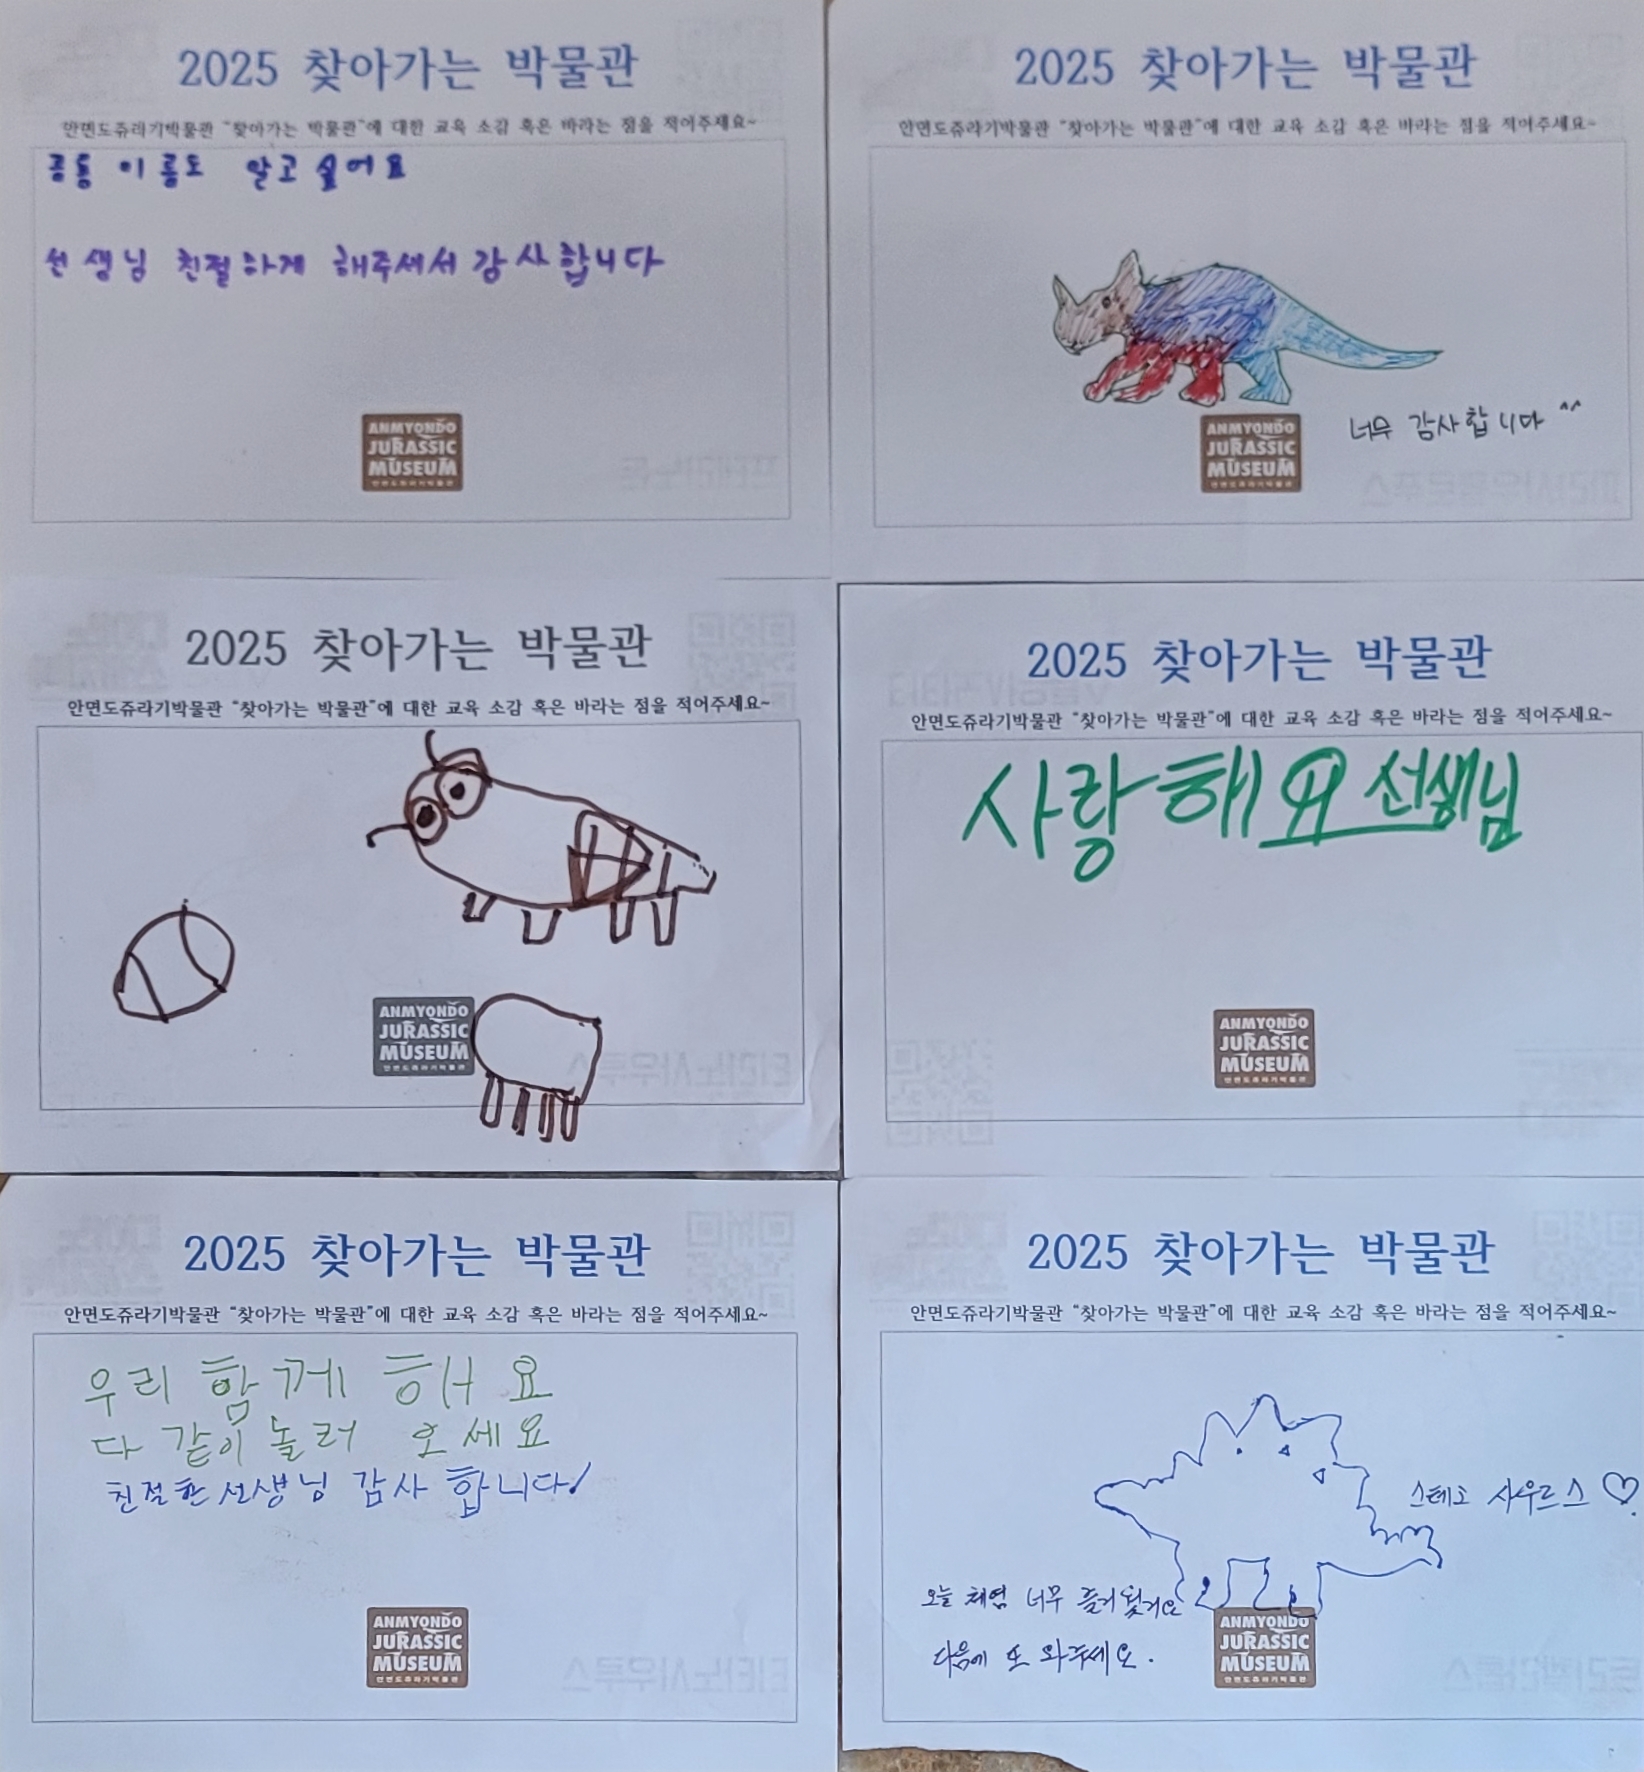 2025 찾아가는 박물관
안면도쥬라기박물관 "찾아가는 박물관"에 대한 교육 소감 혹은 바라는 점을 적어주세요~
공룡 이름도 알고싶어요
선생님 친절하게 해주셔서 감사합니다
ANMYONDO
JURASSIC
MUSEUM
안면도쥬라기박물관
2025 찾아가는 박물관
안면도쥬라기박물관 "찾아가는 박물관"에 대한 교육 소감 혹은 바라는 점을 적어주세요~
너무 감사합니다 ^^
ANMYONDO
JURASSIC
MUSEUM
안면도쥬라기박물관
2025 찾아가는 박물관
안면도쥬라기박물관 "찾아가는 박물관"에 대한 교육 소감 혹은 바라는 점을 적어주세요~
ANMYONDO
JURASSIC
MUSEUM
안면도쥬라기박물관
2025 찾아가는 박물관
안면도쥬라기박물관 "찾아가는 박물관"에 대한 교육 소감 혹은 바라는 점을 적어주세요~
사랑해요 선생님
ANMYONDO
JURASSIC
MUSEUM
안면도쥬라기박물관
2025 찾아가는 박물관
안면도쥬라기박물관 "찾아가는 박물관"에 대한 교육 소감 혹은 바라는 점을 적어주세요~
우리 함께 해요
다 같이 놀러 오세요
친절한 선생님 감사 합니다!
ANMYONDO
JURASSIC
MUSEUM
안면도쥬라기박물관
2025 찾아가는 박물관
안면도쥬라기박물관 "찾아가는 박물관"에 대한 교육 소감 혹은 바라는 점을 적어주세요~
스테고 사우르스 ♡
오늘 체험 너무 즐거웠어요
다음에 또 와주세요.
ANMYONDO
JURASSIC
MUSEUM
안면도쥬라기박물관